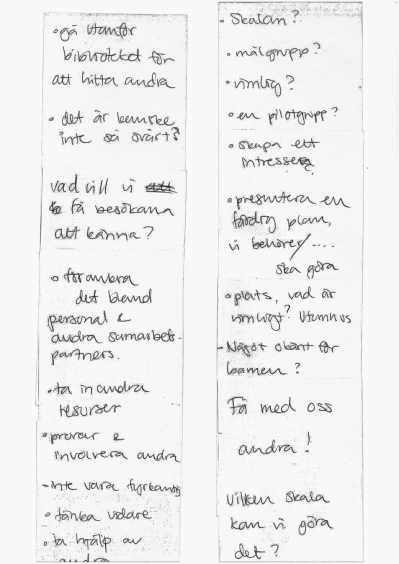 • gå utanför
biblioteket för
att hitta andra
• det är kanske
inte så svårt?
vad vill vi
få besökarna
att känna?
• förankra
det bland
personal &
andra samarbets-
partners.
• ta in andra
resurser
• provar &
involvera andra
- inte vara fyrkantig
• tänka vidare
• ta hjälp av
andra
• Skalan?
• målgrupp?
• rimlig?
• en pilotgrupp?
• skapa ett
intresse?
• presentera en
färdig plan,
vi behöver/....
ska göra
• plats, vad är
rimligt? Utomhus
- Något sånt för
barnen?
Få med oss
andra!
Vilken skala
kan vi göra
det?